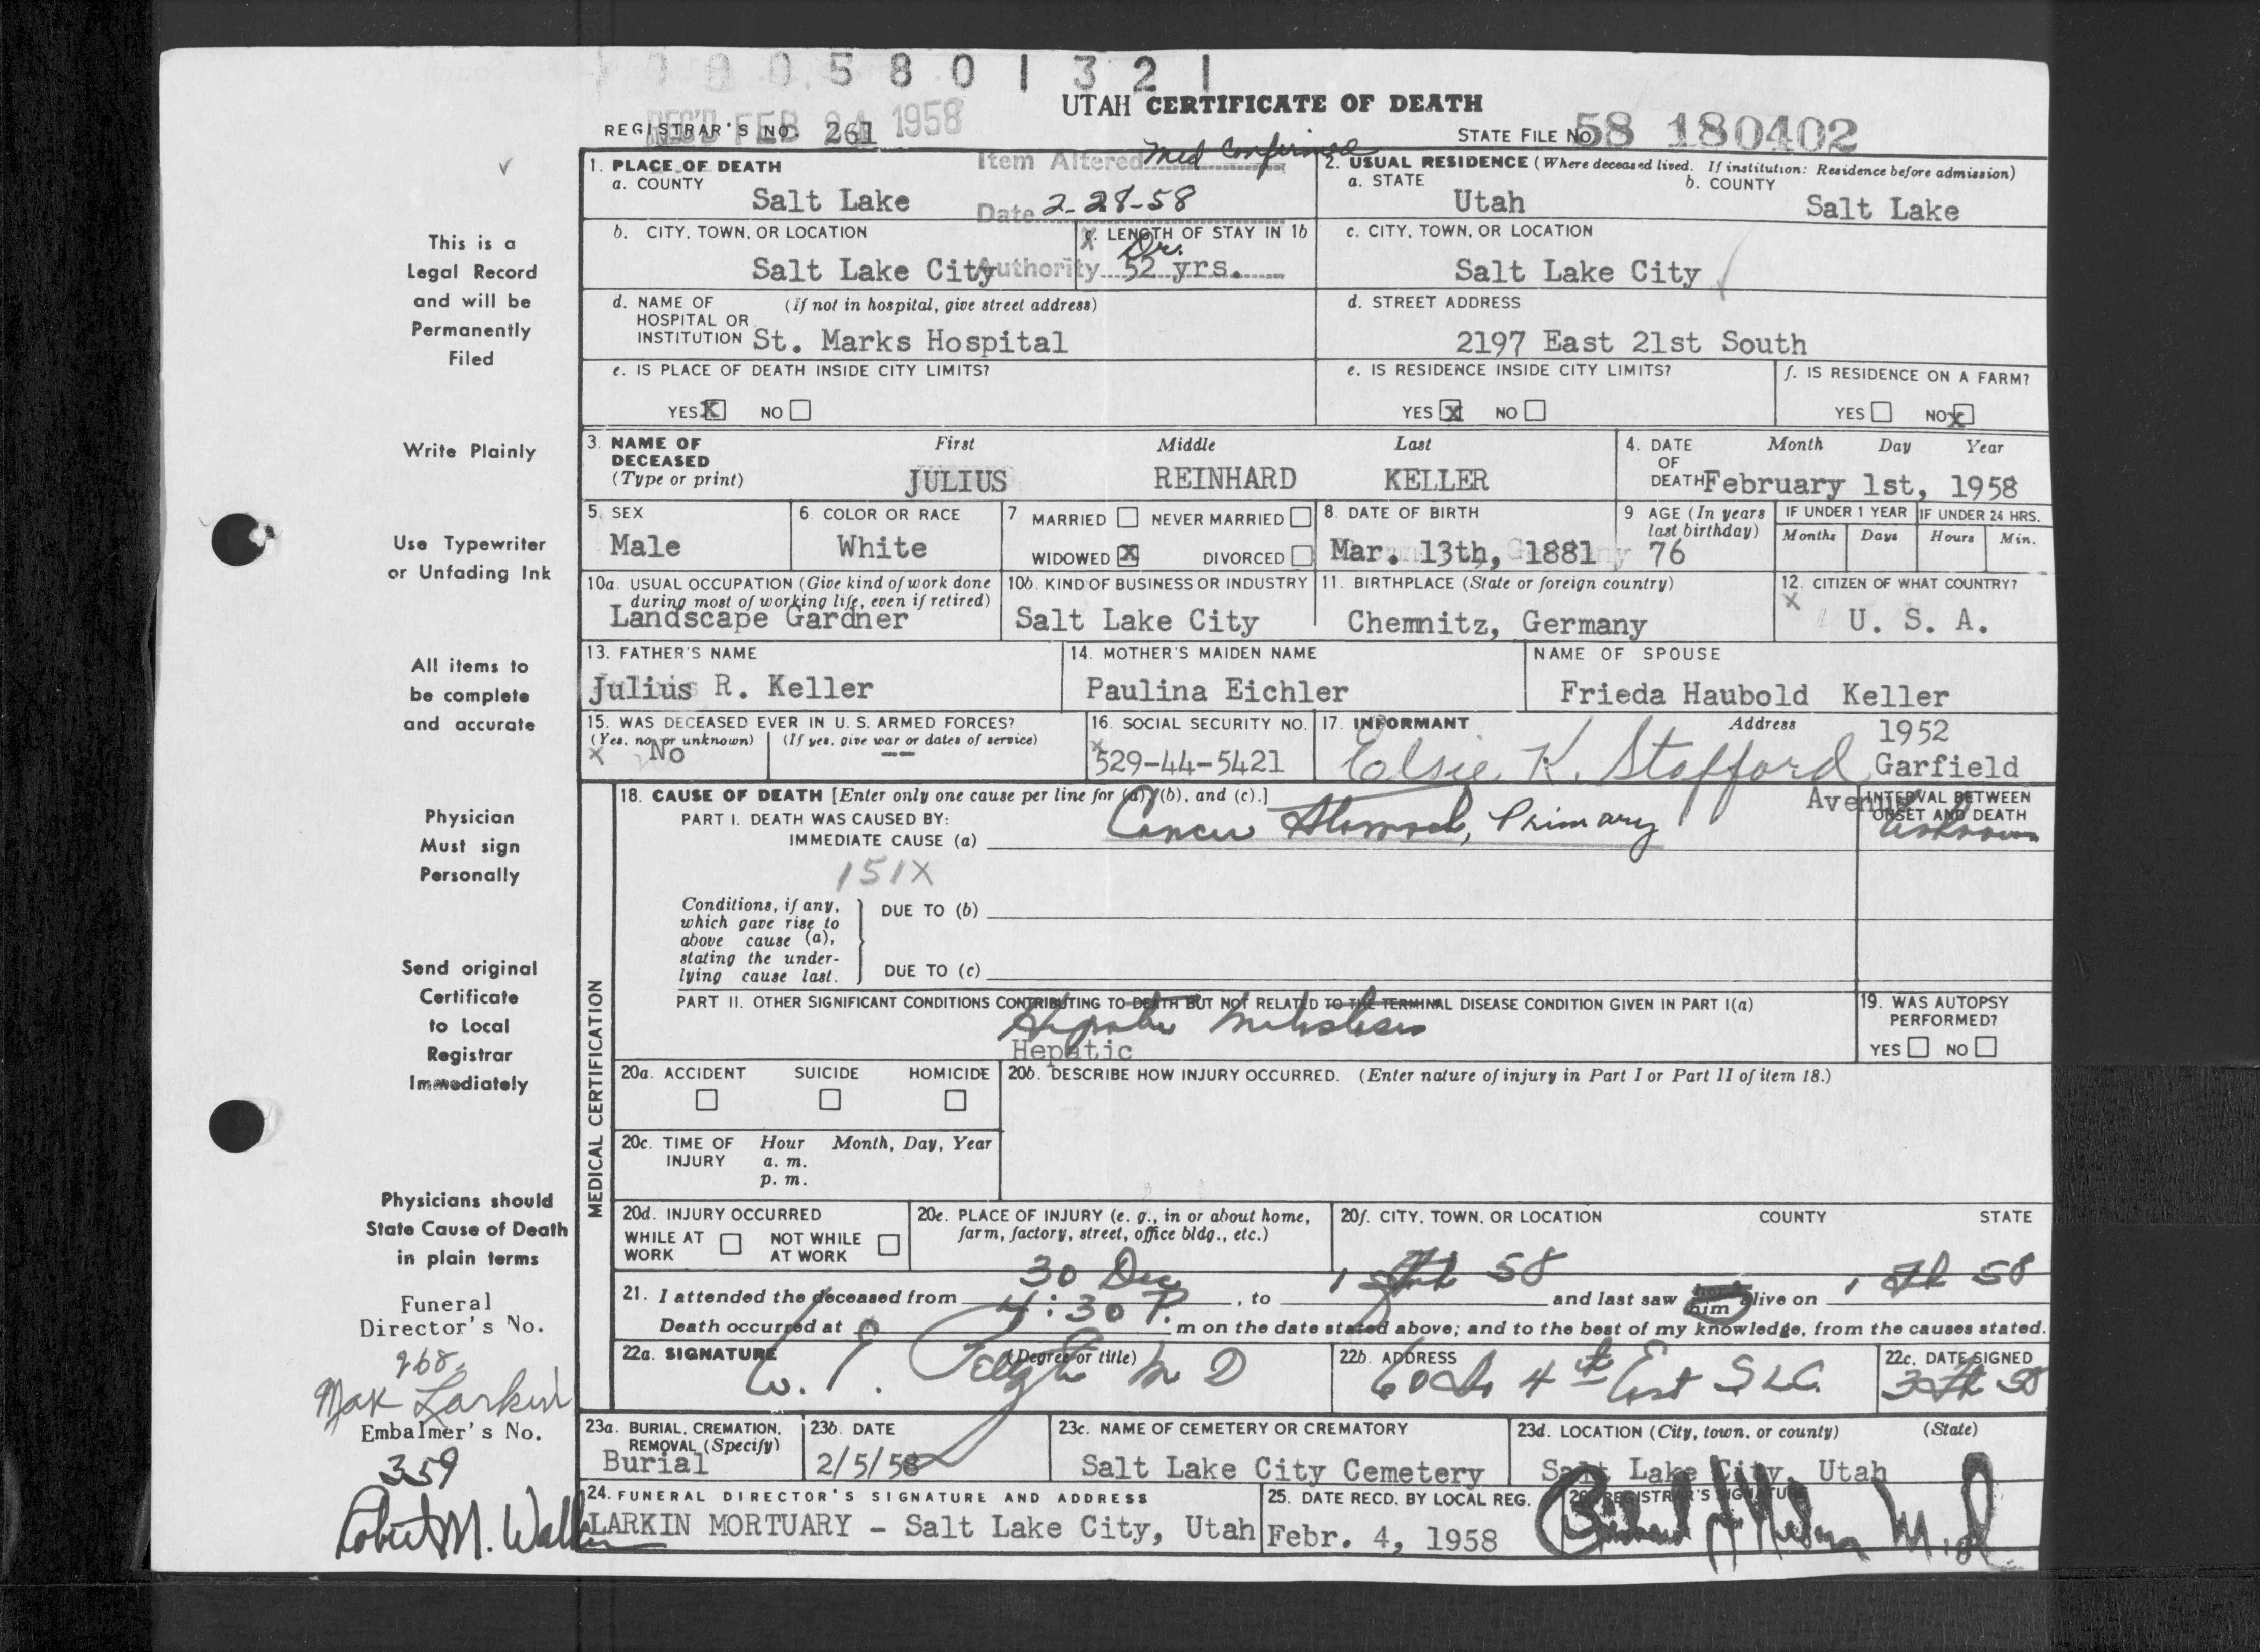 0 0 0 5 8 0 1 3 2 1
UTAH CERTIFICATE OF DEATH
REC'D FEB 1958
REGISTRAR'S NO. 261
STATE FILE No 58 180402
Item Altered Med Confirmed
Date 2-28-58
Authority Dr.
1. PLACE OF DEATH
a. COUNTY
Salt Lake
2. USUAL RESIDENCE (Where deceased lived. If institution: Residence before admission)
a. STATE
Utah
b. COUNTY
Salt Lake
b. CITY, TOWN, OR LOCATION
Salt Lake City
c. LENGTH OF STAY IN 1b
52 yrs.
c. CITY, TOWN, OR LOCATION
Salt Lake City
d. NAME OF (If not in hospital, give street address)
HOSPITAL OR
INSTITUTION St. Marks Hospital
d. STREET ADDRESS
2197 East 21st South
e. IS PLACE OF DEATH INSIDE CITY LIMITS?
YES X NO
e. IS RESIDENCE INSIDE CITY LIMITS?
YES X NO
f. IS RESIDENCE ON A FARM?
YES NO X
3. NAME OF DECEASED
(Type or print)
First Middle Last
JULIUS REINHARD KELLER
4. DATE OF DEATH
Month Day Year
February 1st, 1958
5. SEX
Male
6. COLOR OR RACE
White
7 MARRIED NEVER MARRIED
WIDOWED X DIVORCED
8. DATE OF BIRTH
Mar. 13th, 1881
9 AGE (In years last birthday)
76
IF UNDER 1 YEAR
Months Days
IF UNDER 24 HRS.
Hours Min.
10a. USUAL OCCUPATION (Give kind of work done
during most of working life, even if retired)
Landscape Gardner
10b. KIND OF BUSINESS OR INDUSTRY
Salt Lake City
11. BIRTHPLACE (State or foreign country)
Chemnitz, Germany
12. CITIZEN OF WHAT COUNTRY?
X U. S. A.
13. FATHER'S NAME
Julius R. Keller
14. MOTHER'S MAIDEN NAME
Paulina Eichler
NAME OF SPOUSE
Frieda Haubold Keller
15. WAS DECEASED EVER IN U. S. ARMED FORCES?
(Yes, no, or unknown) (If yes, give war or dates of service)
X No --
16. SOCIAL SECURITY NO.
529-44-5421
17. INFORMANT Address
Elsie K. Stafford
1952
Garfield
Avenue
MEDICAL CERTIFICATION
18. CAUSE OF DEATH [Enter only one cause per line for (a), (b), and (c).]
PART I. DEATH WAS CAUSED BY:
IMMEDIATE CAUSE (a) Cancer Stomach, Primary
INTERVAL BETWEEN
ONSET AND DEATH
Unknown
151X
Conditions, if any,
which gave rise to
above cause (a),
stating the under-
lying cause last.
DUE TO (b)
DUE TO (c)
PART II. OTHER SIGNIFICANT CONDITIONS CONTRIBUTING TO DEATH BUT NOT RELATED TO THE TERMINAL DISEASE CONDITION GIVEN IN PART I(a)
Hepatic Metastases
Hepatic
19. WAS AUTOPSY
PERFORMED?
YES NO
20a. ACCIDENT SUICIDE HOMICIDE
20b. DESCRIBE HOW INJURY OCCURRED. (Enter nature of injury in Part I or Part II of item 18.)
20c. TIME OF INJURY
Hour Month, Day, Year
a. m.
p. m.
20d. INJURY OCCURRED
WHILE AT WORK NOT WHILE AT WORK
20e. PLACE OF INJURY (e. g., in or about home,
farm, factory, street, office bldg., etc.)
20f. CITY, TOWN, OR LOCATION COUNTY STATE
21. I attended the deceased from 30 Dec, to 1 Feb 58 and last saw him alive on 1 Feb 58
Death occurred at 4:30 P. m on the date stated above; and to the best of my knowledge, from the causes stated.
22a. SIGNATURE (Degree or title)
M D
22b. ADDRESS
4th East SLC
22c. DATE SIGNED
3 Feb 58
23a. BURIAL, CREMATION,
REMOVAL (Specify)
Burial
23b. DATE
2/5/58
23c. NAME OF CEMETERY OR CREMATORY
Salt Lake City Cemetery
23d. LOCATION (City, town, or county) (State)
Salt Lake City, Utah
24. FUNERAL DIRECTOR'S SIGNATURE AND ADDRESS
LARKIN MORTUARY - Salt Lake City, Utah
25. DATE RECD. BY LOCAL REG.
Febr. 4, 1958
26. REGISTRAR'S SIGNATURE
M.D.
This is a
Legal Record
and will be
Permanently
Filed
Write Plainly
Use Typewriter
or Unfading Ink
All items to
be complete
and accurate
Physician
Must sign
Personally
Send original
Certificate
to Local
Registrar
Immediately
Physicians should
State Cause of Death
in plain terms
Funeral
Director's No.
268
Max Larkin
Embalmer's No.
359
Robert M. Walker